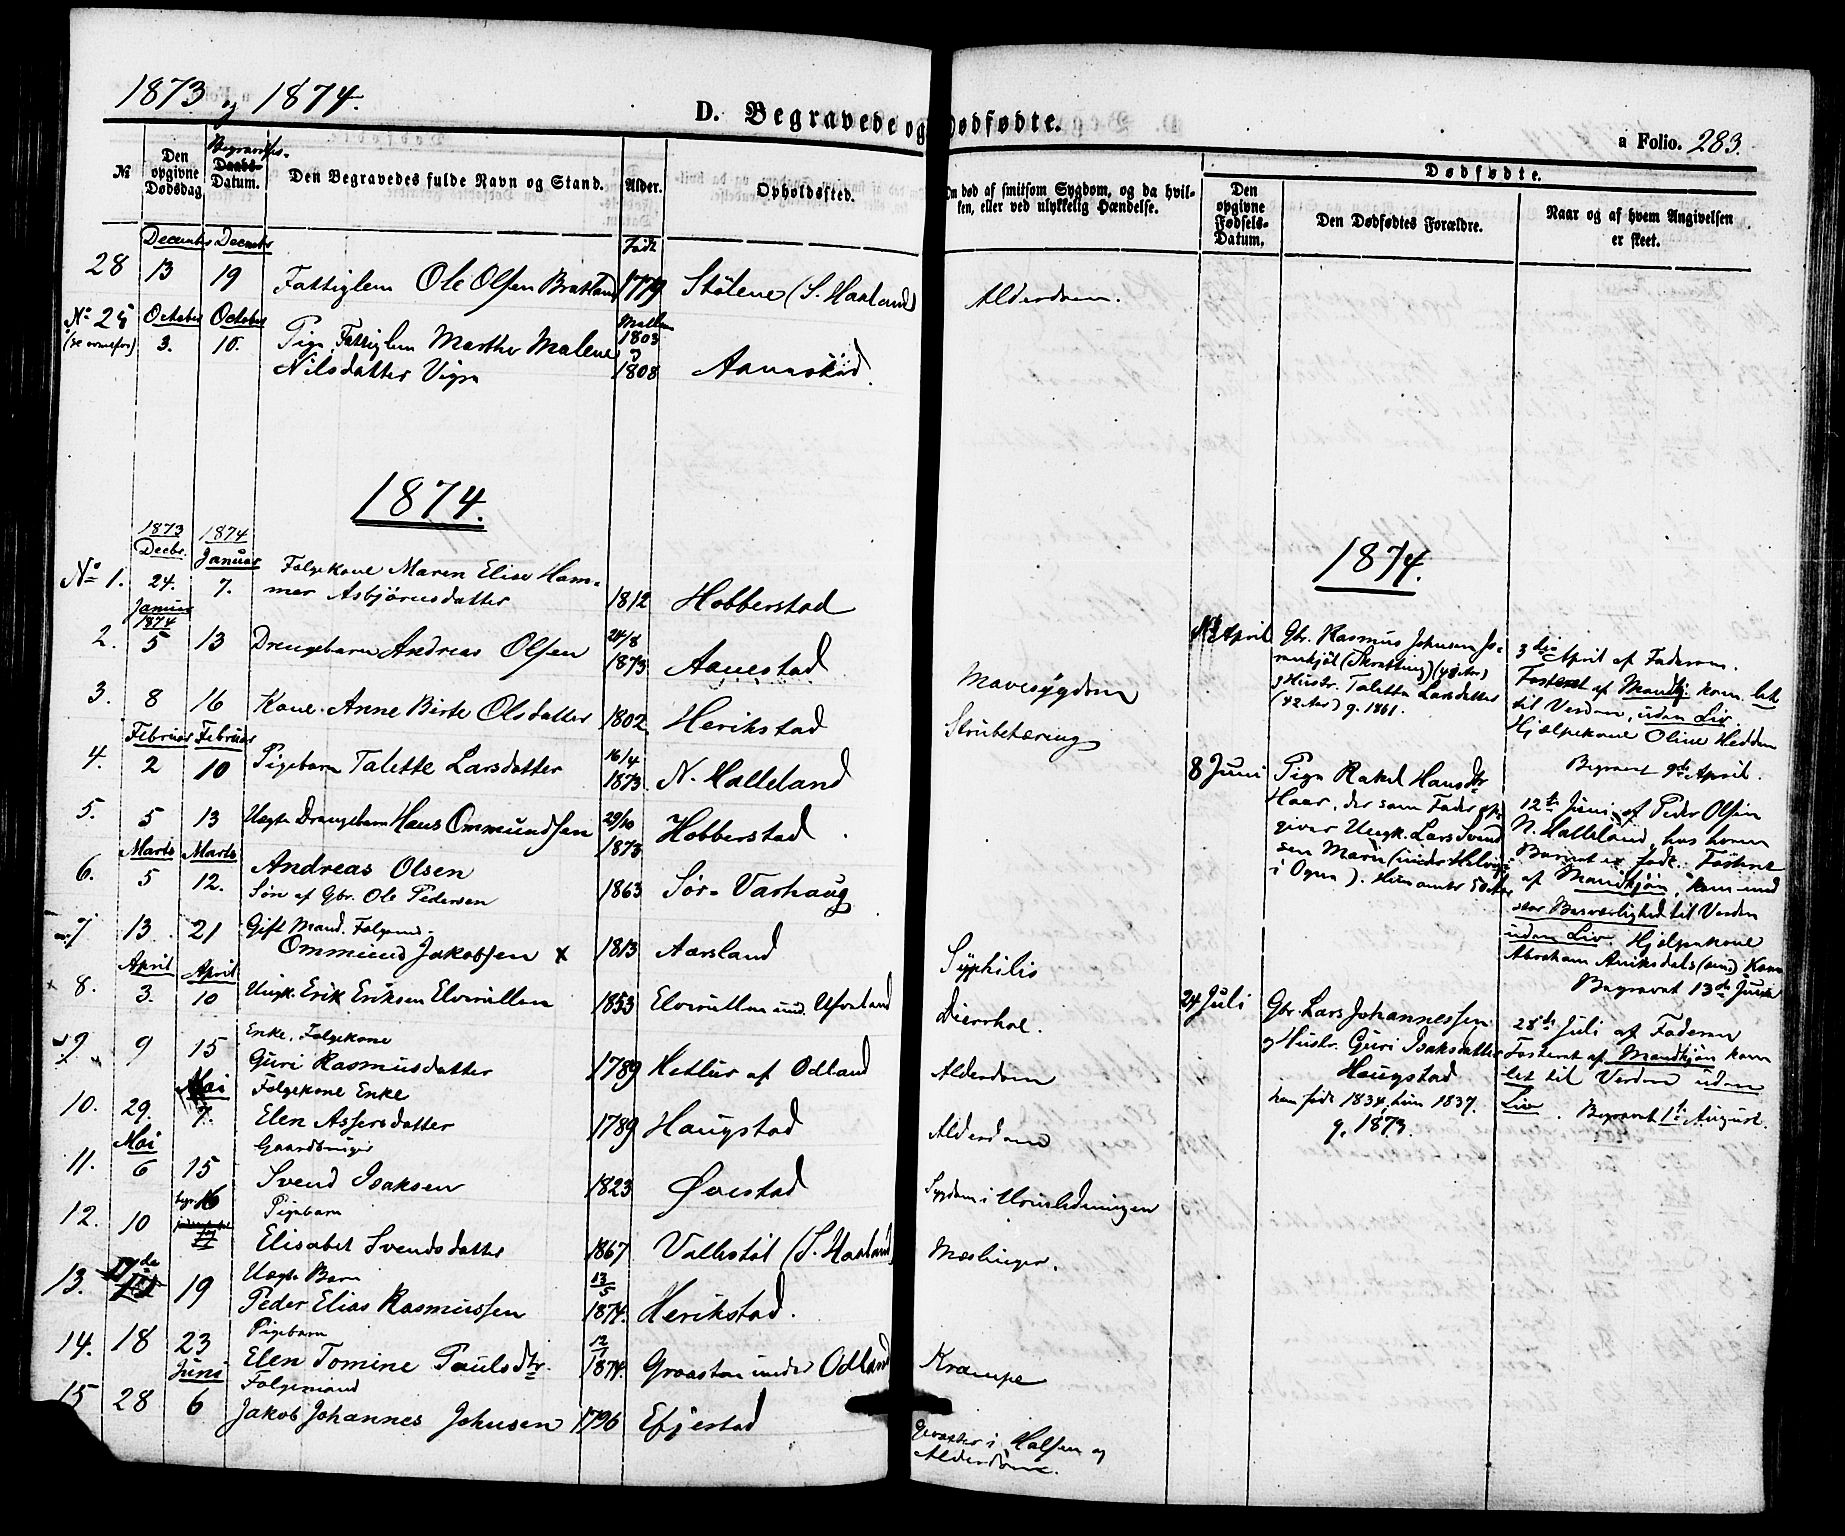 1873 og 1874.
D. Begravede og Dødfødte.
a Folio. 283.
№
Den opgivne Dødsdag
Begravelses-
Daabs-
Datum.
Den Begravedes fulde Navn og Stand.
Alder.
Født
Opholdssted.
Om død af smitsom Sygdom, og da hvil-
ken, eller ved ulykkelig Hændelse.
Dødfødte.
Den opgivne Fødsels-Datum.
Den Dødfødtes Forældre.
Naar og af hvem Angivelsen er skeet.
December December
28 13 19 Fattiglem Ole Olsen Bratland 1779 Stølene (S. Haaland) Alderdom.
No 25 October October
3. 10. Pige Fattiglem Marthe Malene
Nilsdatter Vigre
Mellem 1803 og 1808 Aanestad.
1874.
1873 Decbr. 1874 Januar
No 1. 24. 7. Følgekone Maren Elise Ham-
mer Asbjørnsdatter 1812 Hobberstad
Januar 1874
2. 5 13 Drengebarn Andreas Olsen 24/8 1873 Aanestad
3. 8 16 Kone Anne Birte Olsdatter 1802 Herikstad
Mavesygdom
Strubetæring
Februar Februar
4. 2 10 Pigebarn Talette Larsdatter 16/4 1873. N. Halleland
5. 5 13 Uægte Drengebarn Hans Ommundsen 29/10 1873 Hobberstad
Marts Marts
6. 5 12. Andreas Olsen
Søn af Gbr. Ole Pedersen 1863 Sør-Varhaug
7 13 21 Gift Mand. Følgemd.
Ommund Jakobsen x 1813 Aarsland
Syphilis
April April
8. 3. 10 Ungk. Erik Eriksen Elvevullen 1853 Diærrhoe.
9 9 15 Enke, Følgekone
Guri Rasmusdatter 1789 Hetlur af Odland Alderdom
Mai
10. 29. 7. Følgekone Enke
Elen Assersdatter 1789 Haugstad Alderdom
Mai
11. 6 15 Gaardbruger
Svend Isaksen 1823 Øvestad Sygdom i Urinledningen
12. 10 begr. 16
17 Pigebarn
Elisabet Svendsdatter 1867 Vallestøl (S. Haaland) Mæslinger.
13. 17de 19 Uægte Barn
Peder Elias Rasmussen 13/5 1874. Herikstad.
14. 18 23 Pigebarn
Elen Tomine Paulsdtr. 1874. Graasten under Odland Krampe
Juni
15 28 6 Følgemand
Jakob Johannes Johnsen 1796 Efjestad
i Halsen og
Alderdom.
1874.
No 1 April Gbr. Rasmus Johnsen
(48 Aar)
og Hustr. Taletta Larsdatter
(42 Aar) g. 1861.
3die April af Faderen.
Fosteret af Mandkj. kom let
til Verden, uden Liv.
Hjælpekone Oline Hedden
Begravet 9de April.
8 Juni Pige Rakel Hansdtr.
Haar, der som Fader op-
giver Ungk. Lars Svend-
sen
i Ogna).
12te Juni af Peder Olsen
N. Halleland, hos hvem
Barnet er født. Fosteret
af Mandkjøn, kom med
stor Besværlighed til Verden
uden Liv. Hjælpekone
Abraham Aniksdals (und) Kone
Begravet 13de Juni
24 Juli Gbr. Lars Johannessen
og Hustr. Guri Isaksdatter
Haugstad
han født 1834, hun 1837.
g. 1873.
28de Juli af Faderen
Fosteret af Mandkjøn kom
let til Verden uden
Liv. Begravet 1ste August.